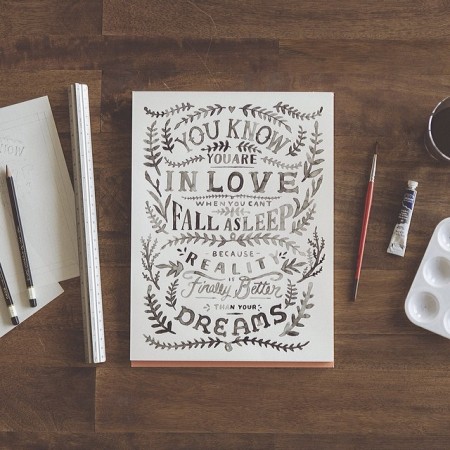 YOU KNOW
YOU ARE
IN LOVE
WHEN YOU CAN'T
FALL ASLEEP
BECAUSE
REALITY
IS
Finally Better
THAN YOUR
DREAMS